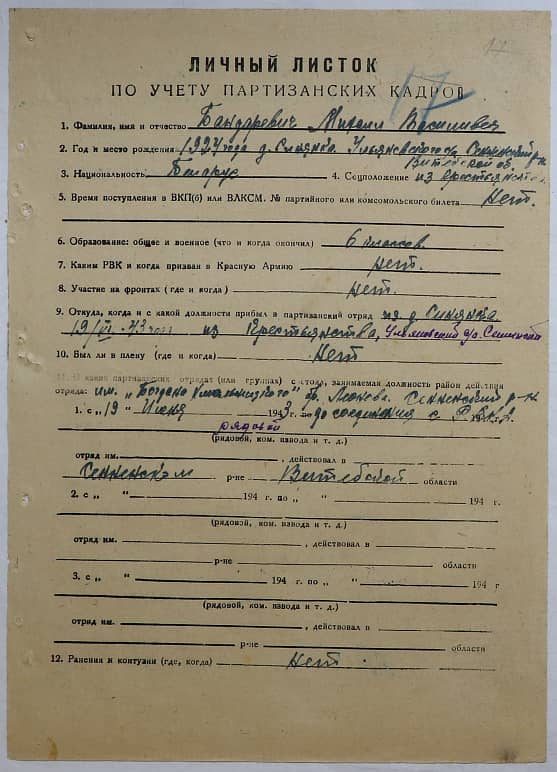 17
ЛИЧНЫЙ ЛИСТОК
ПО УЧЕТУ ПАРТИЗАНСКИХ КАДРОВ
1. Фамилия, имя и отчество Бандаревич Михаил Васильевич
2. Год и место рождения 1927 года д. Синянка Ульяновского с/с Сеннинский р-н
Витебской об.
3. Национальность Беларус 4. Соцположение из крестьянства
5. Время поступления в ВКП(б) или ВЛКСМ. № партийного или комсомольского билета Нет.
6. Образование: общее и военное (что и когда окончил) 6 классов
7. Каким РВК и когда призван в Красную Армию нет.
8. Участие на фронтах (где и когда) Нет.
9. Откуда, когда и с какой должности прибыл в партизанский отряд из д. Синянка
19/VI-43 года из крестьянства, Ульяновский
10. Был ли в плену (где и когда) Нет
11. В каких партизанских отрядах (или группах) состоял, занимаемая должность район действия
отряда: им. "Богдана Хмельницкого" бр. Леонова. Сенненский р-н
1. с „ 19 " Июня 1943 г. по до соединения с Р.К.К.А.
рядовой
(рядовой, ком. взвода и т. д.)
отряд им. , действовал в
Сенненском р-не Витебской области
2. с „ " 194 г. по „ " 194 г.
(рядовой, ком. взвода и т. д.)
отряд им. , действовал в
р-не области
3. с „ " 194 г. по „ " 194 г
(рядовой, ком. взвода и т. д.)
отряд им. , действовал в
р-не области
12. Ранения и контузии (где, когда) Нет.